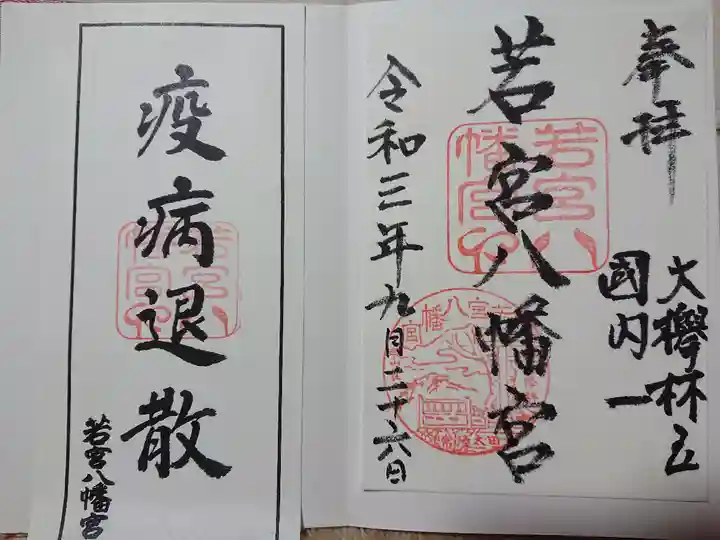 奉拝
大欅林立
國内一
若宮八幡宮
令和三年九月二十六日
若宮八幡宮
疫病退散
若宮八幡宮
若宮八幡宮